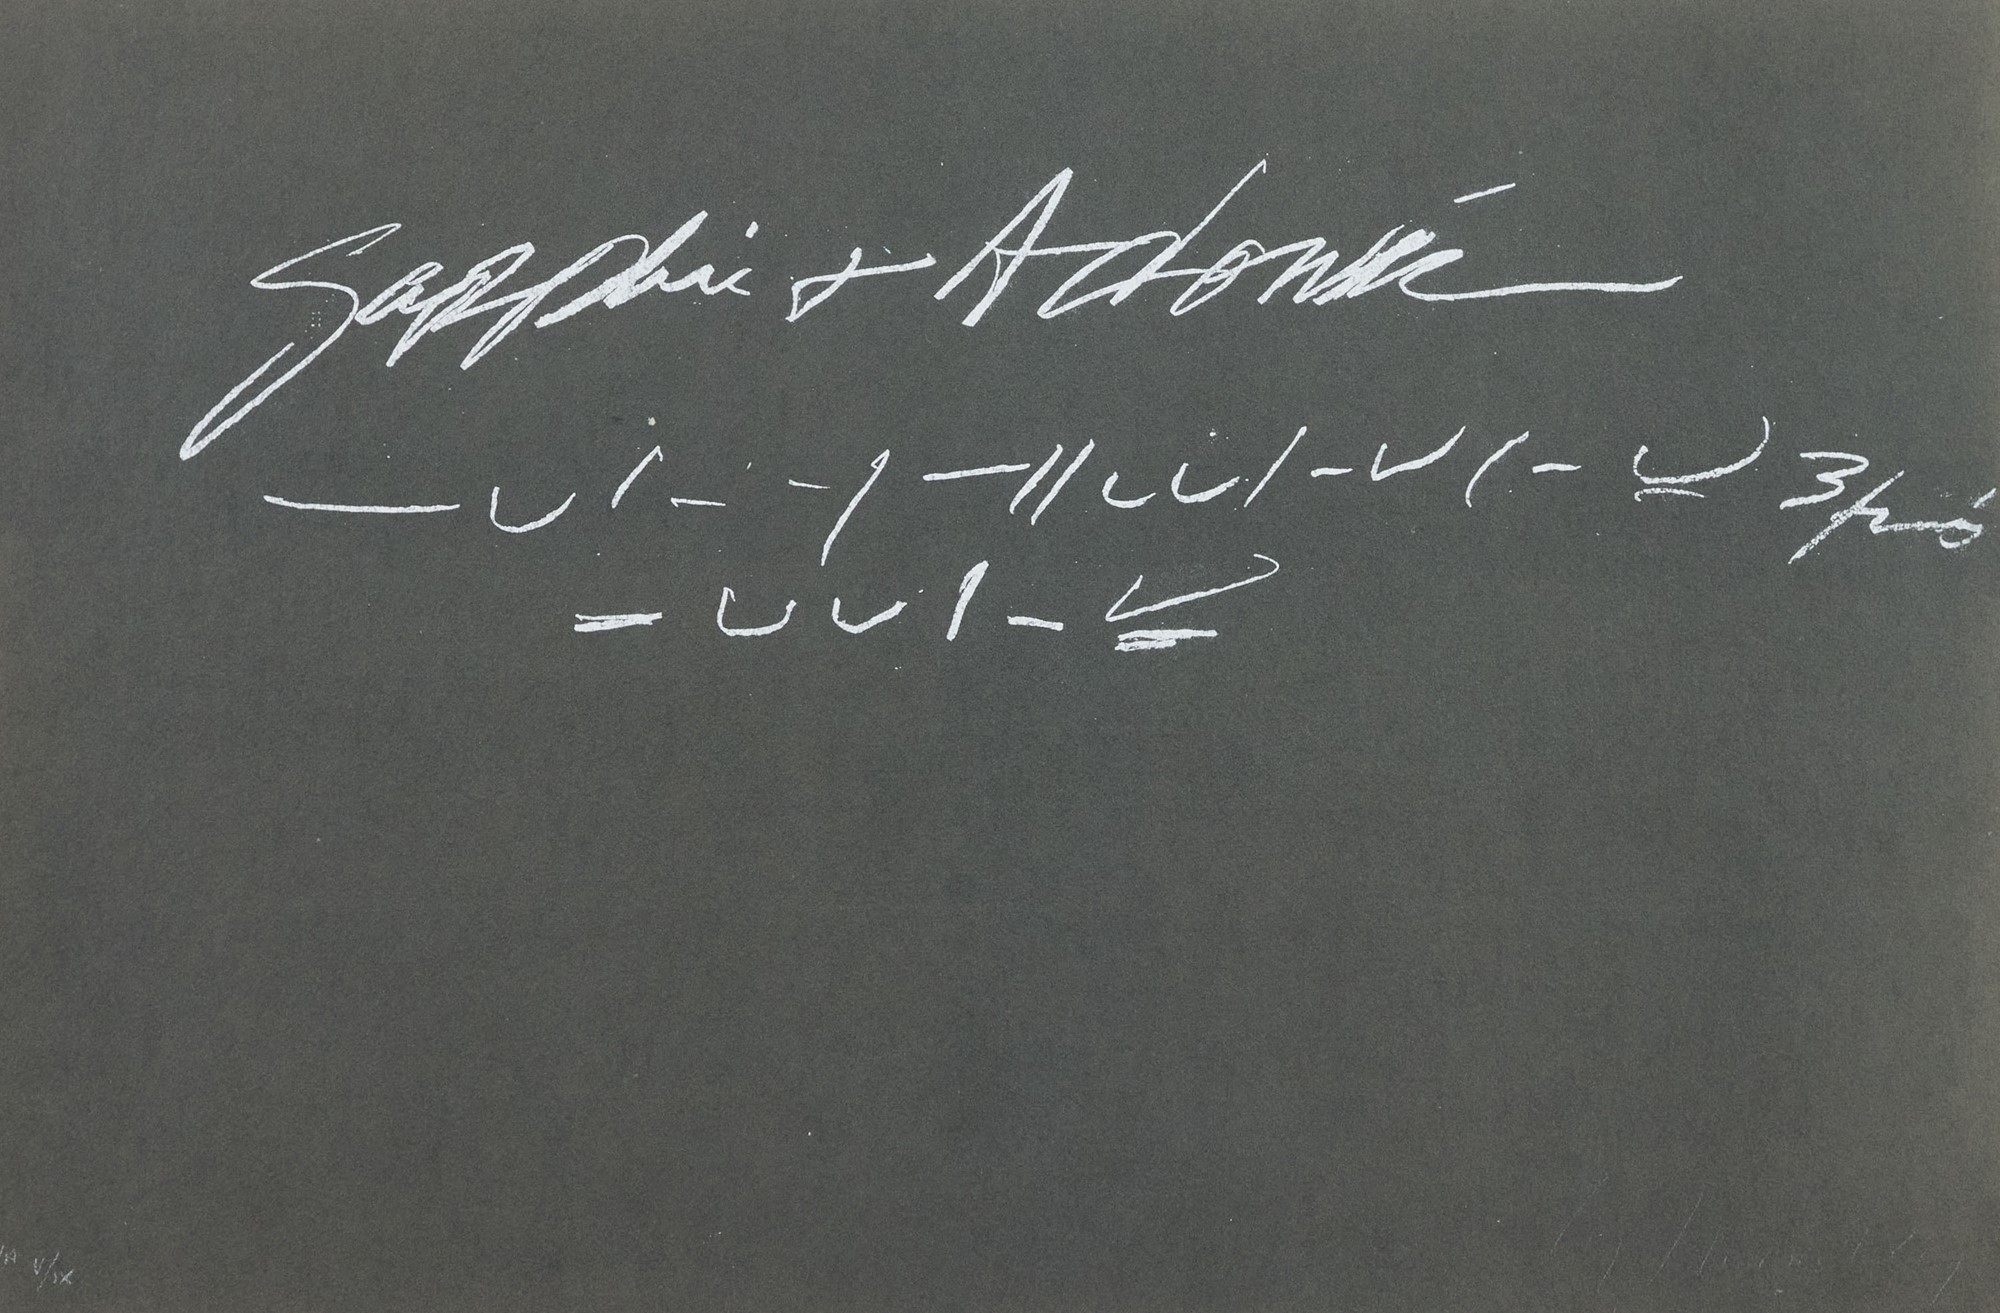 Sapphic + Adonic
— ∪ | — — | — || ∪ ∪ | — ∪ | — ∪ 3
— ∪ ∪ | — ∪
V/IX